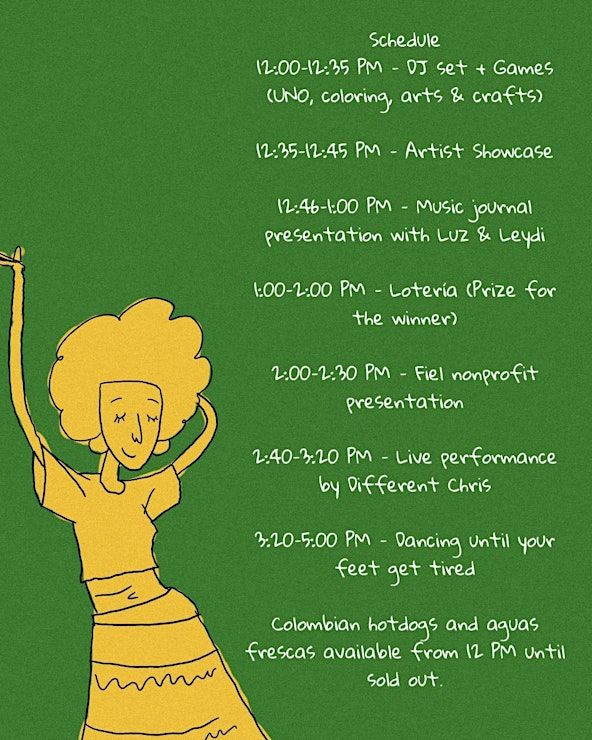 Schedule
12:00-12:35 PM - DJ set + Games
(UNO, coloring, arts & crafts)
12:35-12:45 PM - Artist Showcase
12:46-1:00 PM - Music journal
presentation with Luz & Leydi
1:00-2:00 PM - Loteria (Prize for
the winner)
2:00-2:30 PM - Fiel nonprofit
presentation
2:40-3:20 PM - Live performance
by Different Chris
3:20-5:00 PM - Dancing until your
feet get tired
Colombian hotdogs and aguas
frescas available from 12 PM until
sold out.